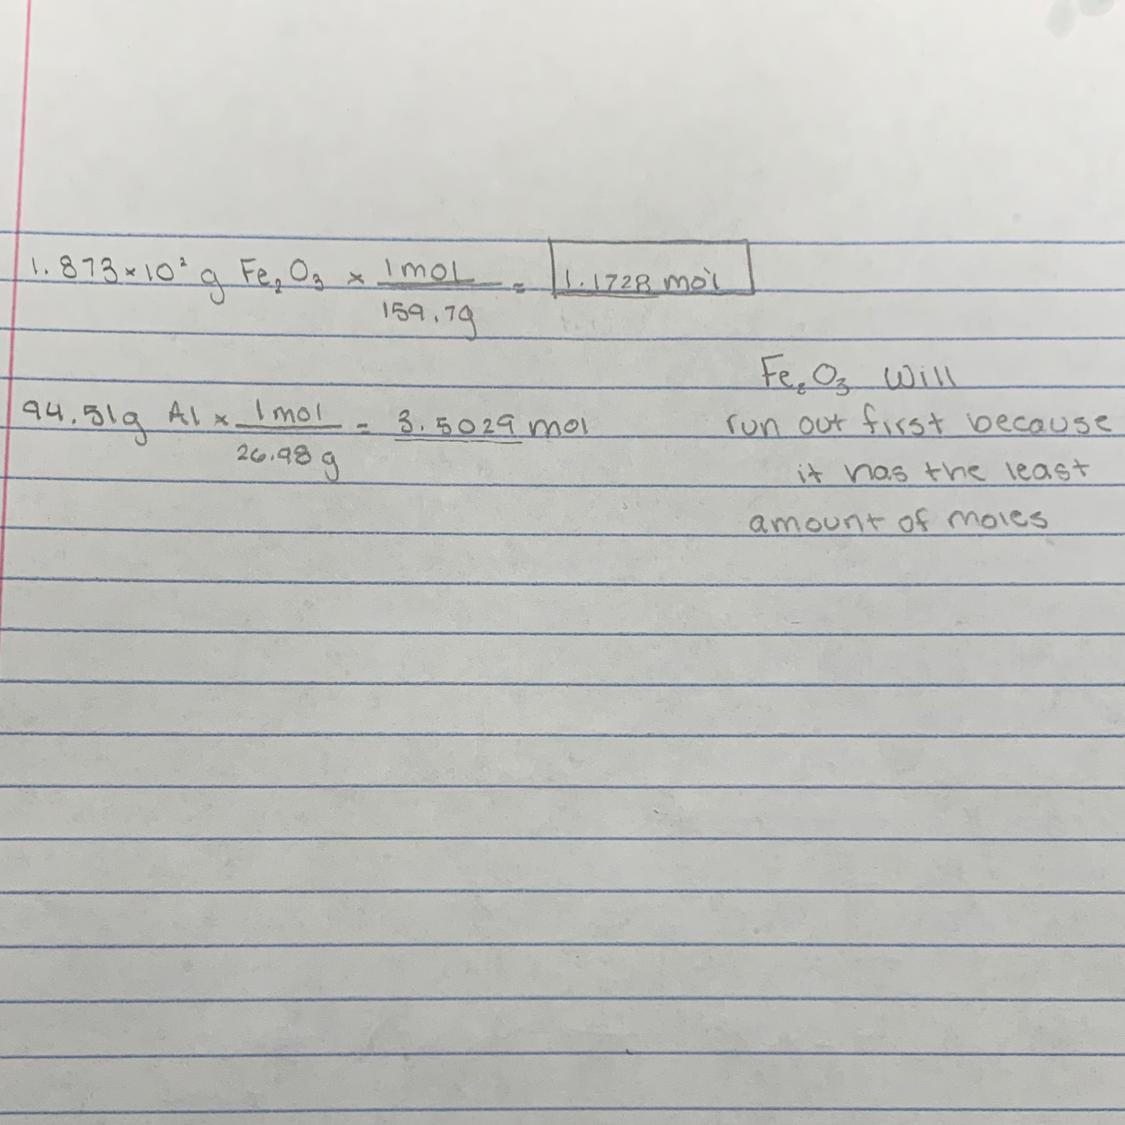 1.873×10² g Fe₂O₃ × 1mol / 159.7g = 1.1728 mol
94.51g Al × 1mol / 26.98 g = 3.5029 mol
Fe₂O₃ will
run out first because
it has the least
amount of moles